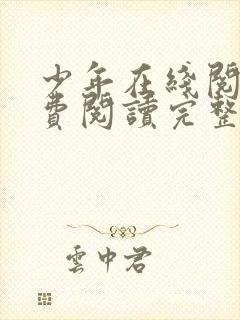 少年在綫閱
費閱讀完整
雲中君